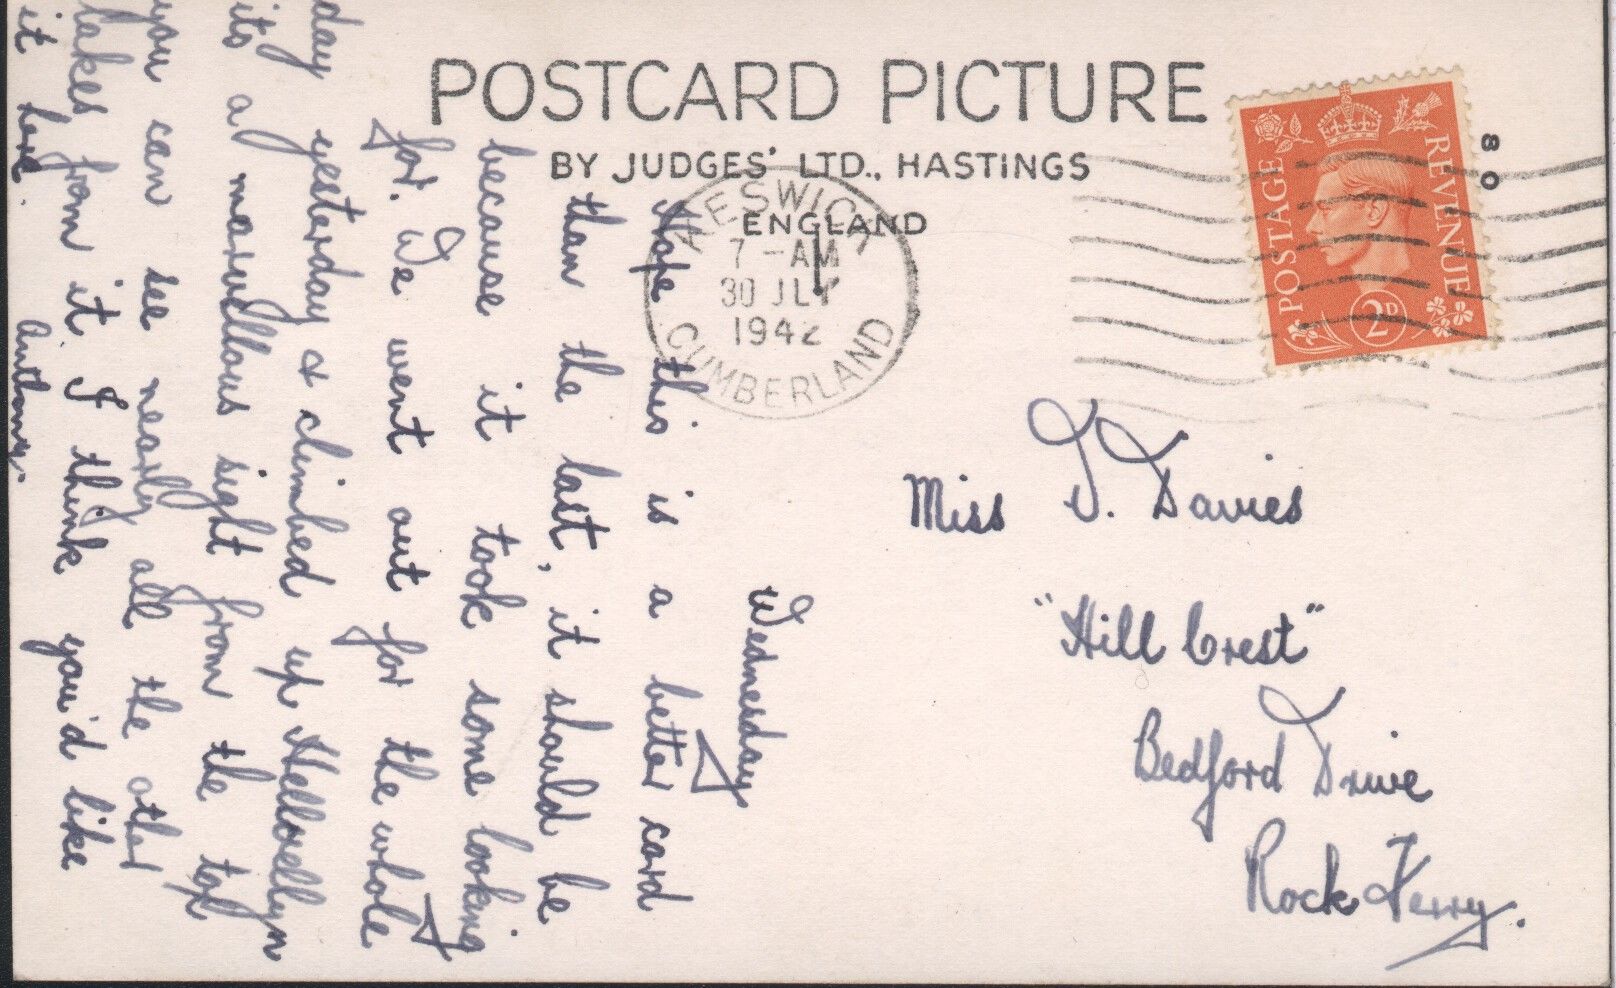 POSTCARD PICTURE
BY JUDGES' LTD., HASTINGS
ENGLAND
KESWICK
7-AM
30 JLY
1942
CUMBERLAND
POSTAGE
REVENUE
2D
80
Wednesday
Hope this is a better card
than the last, it should be
because it took some looking
for. We went out for the whole
day yesterday & climbed up Hellvellyn
its a marvellous sight from the top
you can see nearly all the other
lakes from it I think you'd like
it here. Anthony.
Miss J. Davies
"Hill Crest"
Bedford Drive
Rock Ferry.